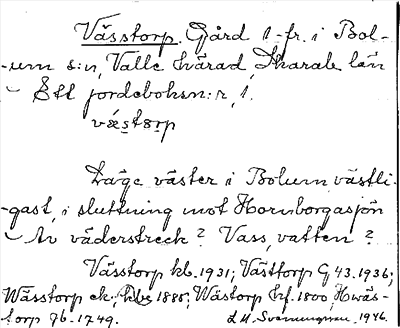 Västtorp. Gård 1 fr. i Bol-
-um s:n, Valle härad, Skarab. län
Ett jordeboksn:r, 1.
västorp
Läge väster i Bolum västli-
-gast, i sluttning mot Hornborgasjön
Av väderstreck? Vass, vatten?
Västorp kb. 1931; Västtorp G. 43. 1936;
Wässtorp ek. 1885; Wästorp hf. 1800; Hwäs-
torp Jb. 1749. 1946.